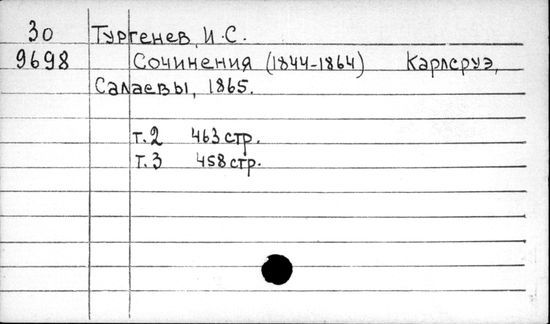 30 Тургенев, И.С.
9698 Сочинения (1844-1864) Карлсруэ,
Салаевы, 1865.
т.2 463 стр.
т.3 458 стр.